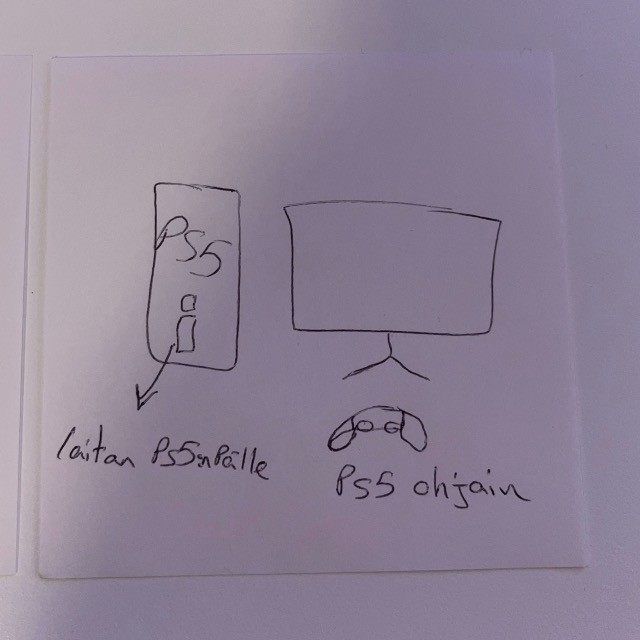 PS5
laitan PS5n Pälle
PS5 ohjain